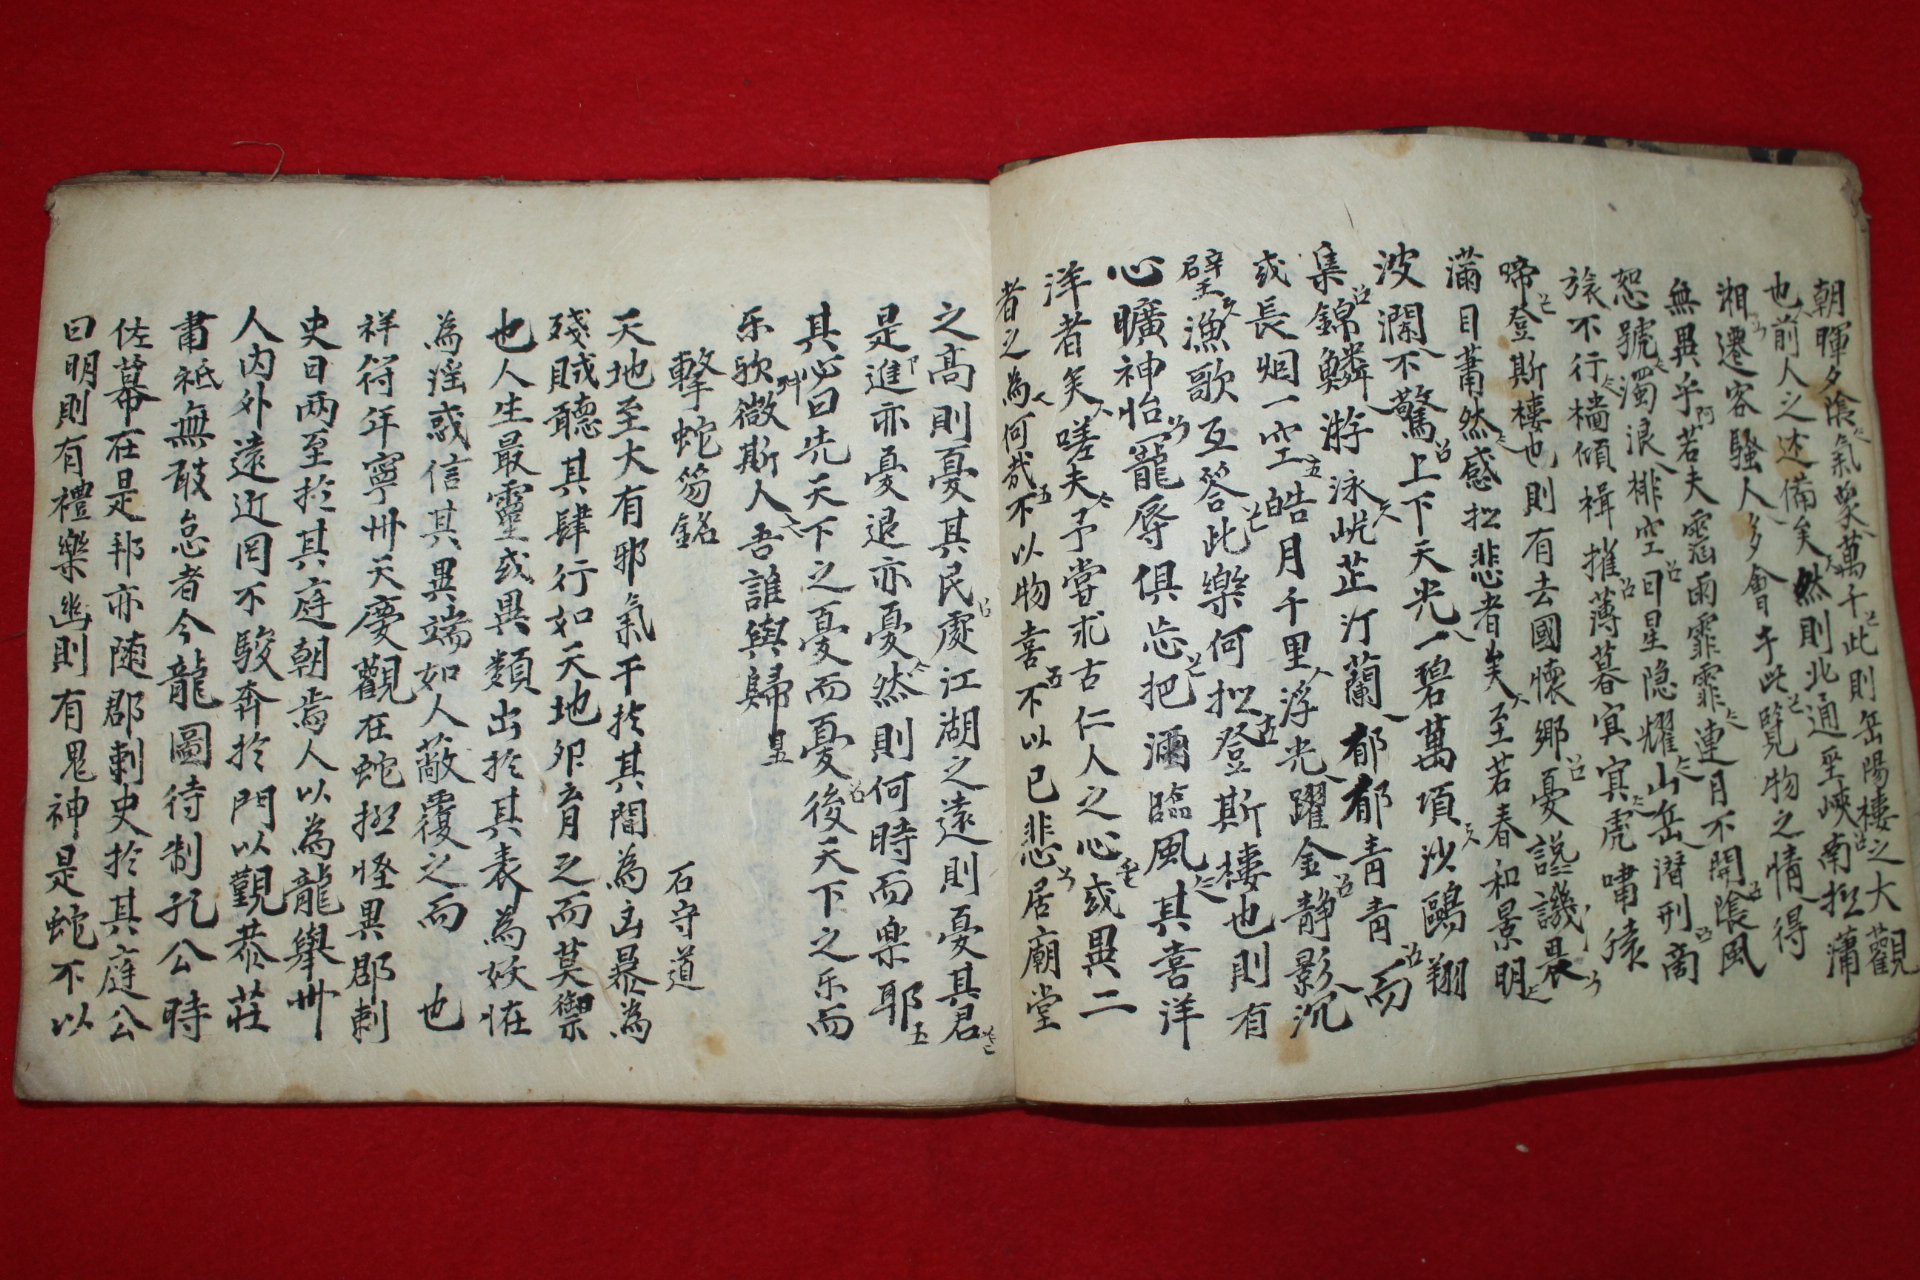 朝暉夕陰氣象萬千此則岳陽樓之大觀
也前人之述備矣然則北通巫峽南極蒲
湘遷客騷人多會于此覽物之情得
無異乎若夫霪雨霏霏連月不開陰風
恕號濁浪排空日星隐耀山岳潜刑商
旅不行檣傾楫摧薄暮冥冥虎嘯猿
啼登斯樓也則有去國懷鄉憂讒譏畏
滿目蕭然感極悲者矣至若春和景明
波瀾不驚上下天光一碧萬頃沙鷗翔
集錦鱗游泳岸芷汀蘭郁郁青青而
或長烟一空皓月千里浮光躍金静影沉
璧漁歌互答此樂何极登斯樓也則有
心曠神怡寵辱俱忘把酒臨風其喜洋
洋者矣嗟夫予嘗求古仁人之心或異二
者之為何哉不以物喜不以已悲居廟堂
之高則憂其民處江湖之遠則憂其君
是進亦憂退亦憂然則何時而樂耶
其必曰先天下之憂而憂後天下之乐而
乐欤微斯人吾誰與歸
擊蛇笏銘
石守道
天地至大有邪氣干於其間為凶暴為
殘賊聽其肆行如天地卵育之而莫禦
也人生最靈或異類出於其表為妖怪
為淫惑信其異端如人蔽覆之而 也
祥符年寧州天慶觀在蛇極怪異郡刺
史日两至於其庭朝焉人以為龍舉州
人内外遠近罔不駿奔於門以觀恭莊
肅祇無敢怠者今龍圖待制孔公時
佐幕在是邦亦随郡刺史於其庭公
曰明則有禮樂幽則有鬼神是蛇不以